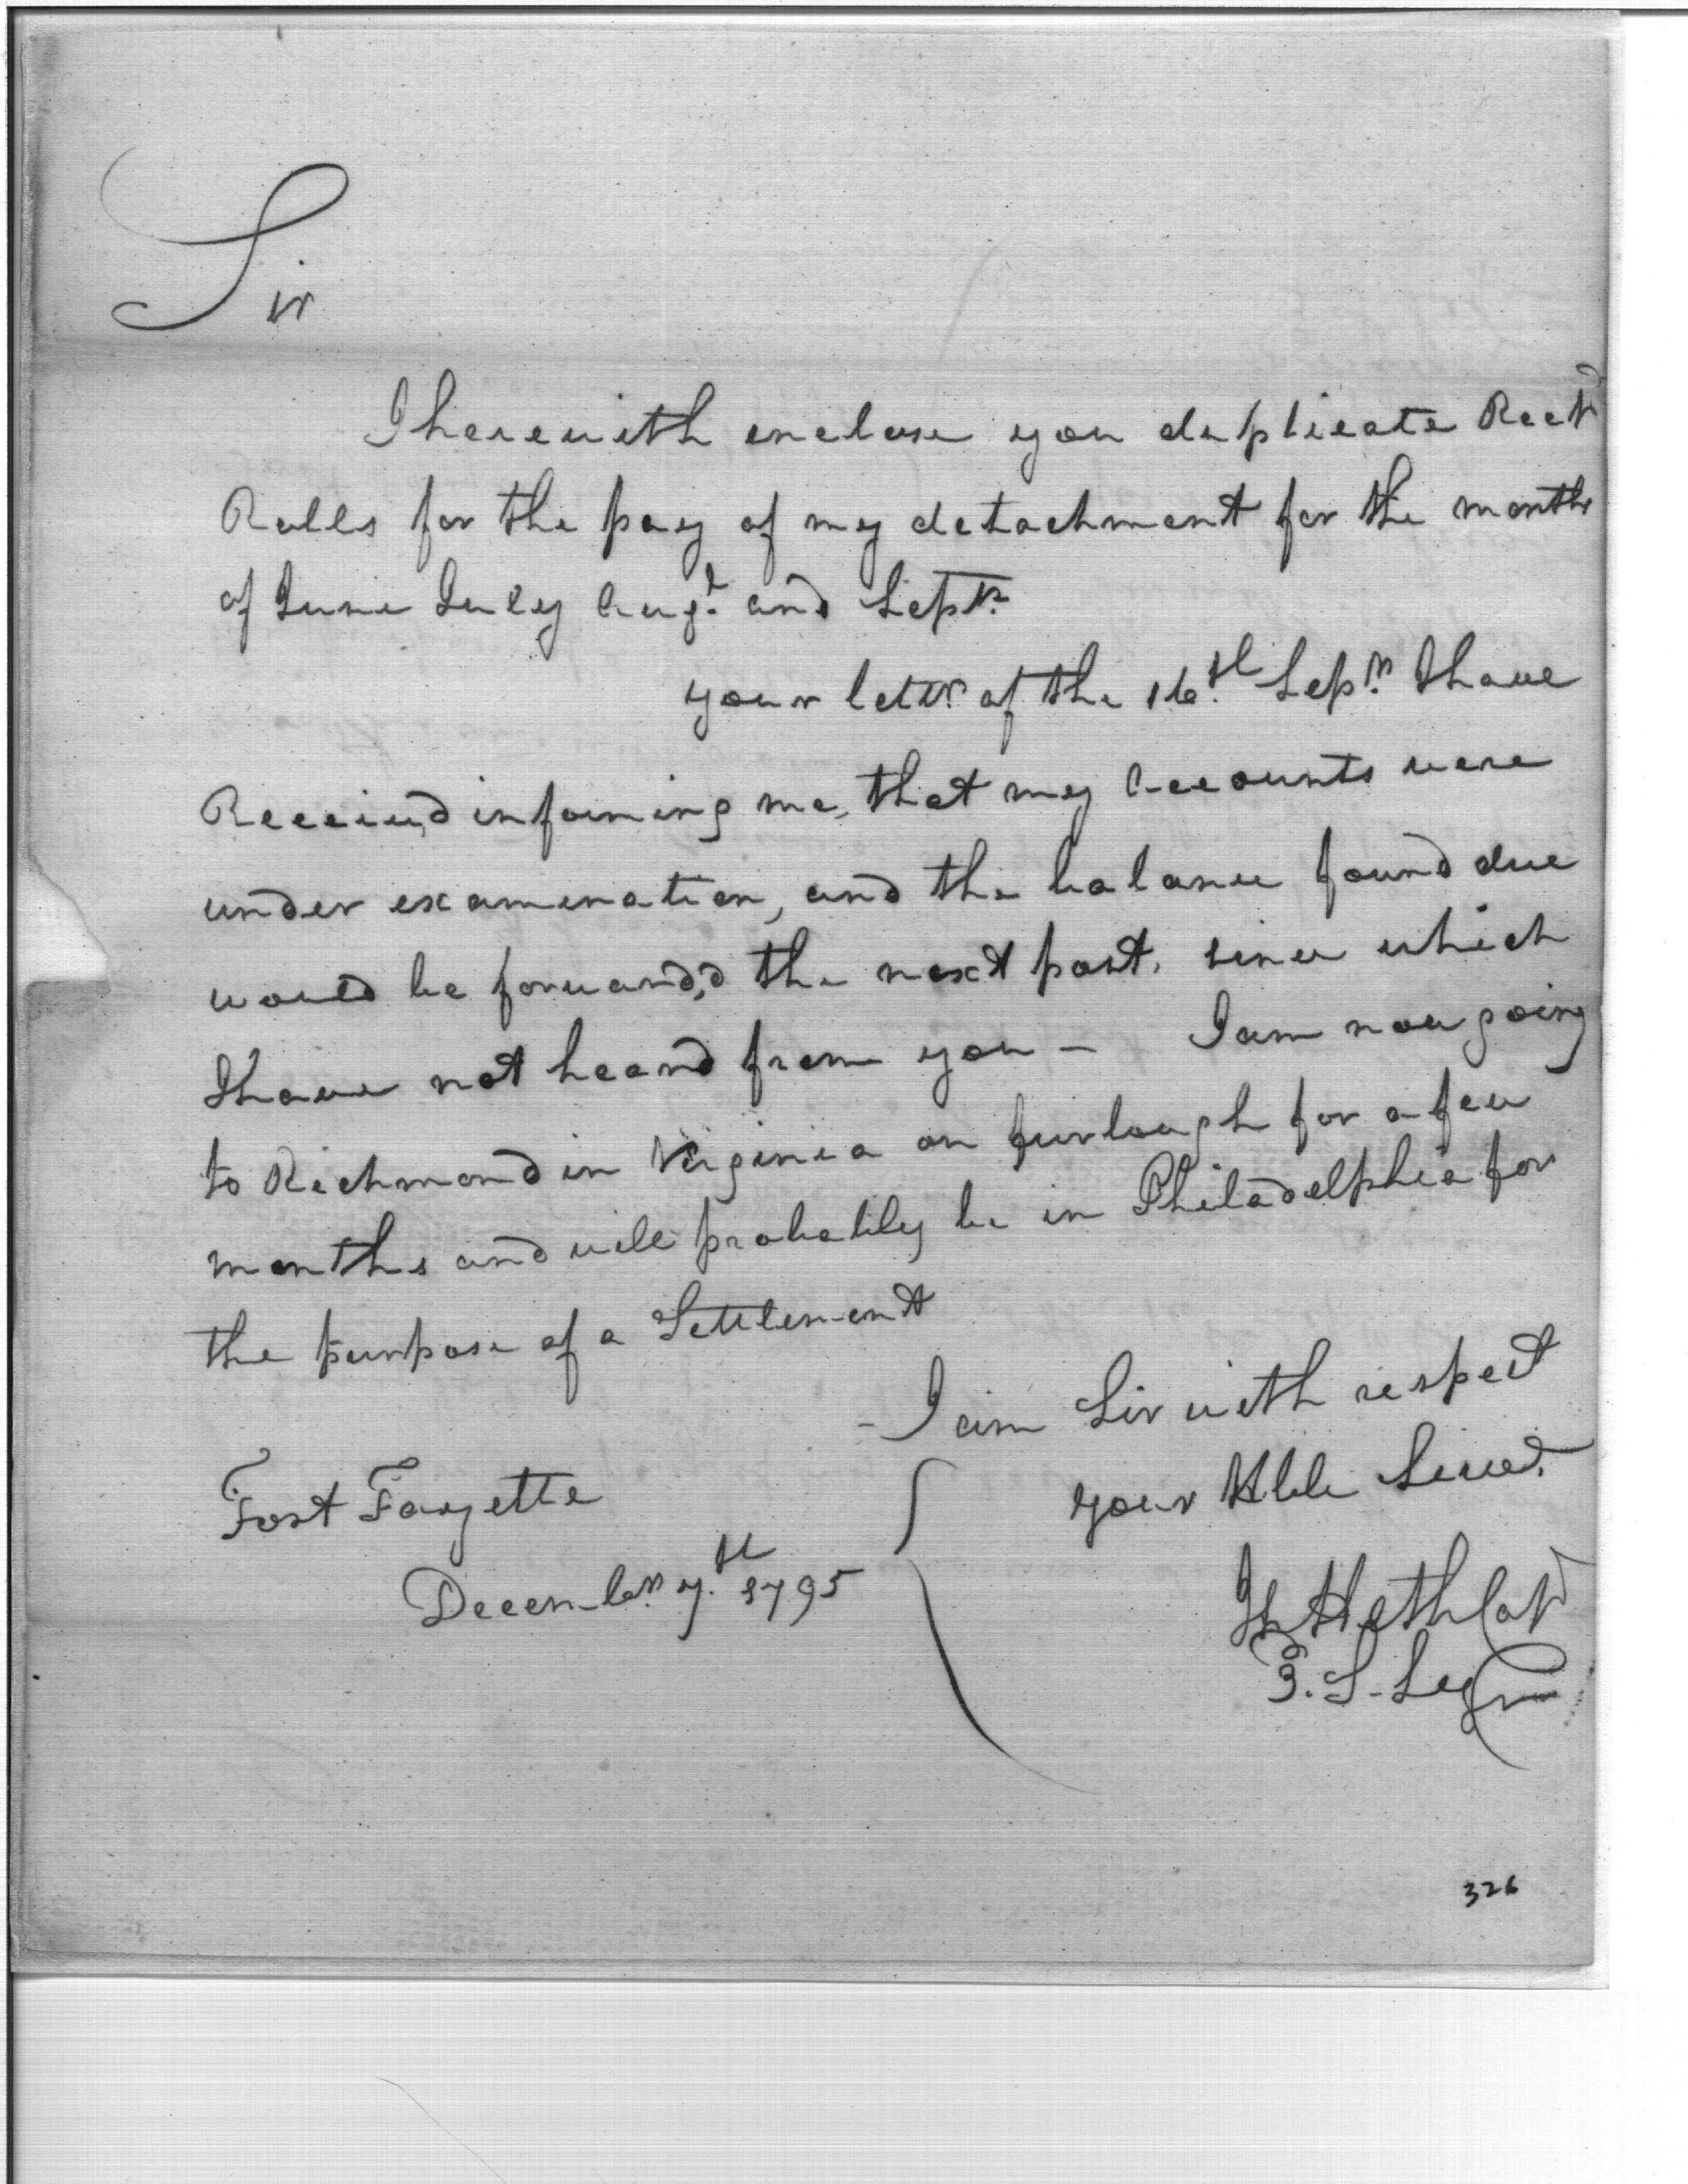 Sir
I herewith enclose you duplicate Rect
Rolls for the pay of my detachment for the months
of June July Augt. and Septr.
your lettr. of the 16th. Sepr. I have
Received informing me, that my Accounts were
under examination, and the balance found due
would be forward,d the next post. since which
I have not heard from you — I am now going
to Richmond in Virginia on furlough for a few
months and will probably be in Philadelphia for
the purpose of a Settlement
- I am Sir with respect
your Hble Servt.
Fort Fayette
Decembr. 7th. 1795
Heth Capt
3. S. Legn
326